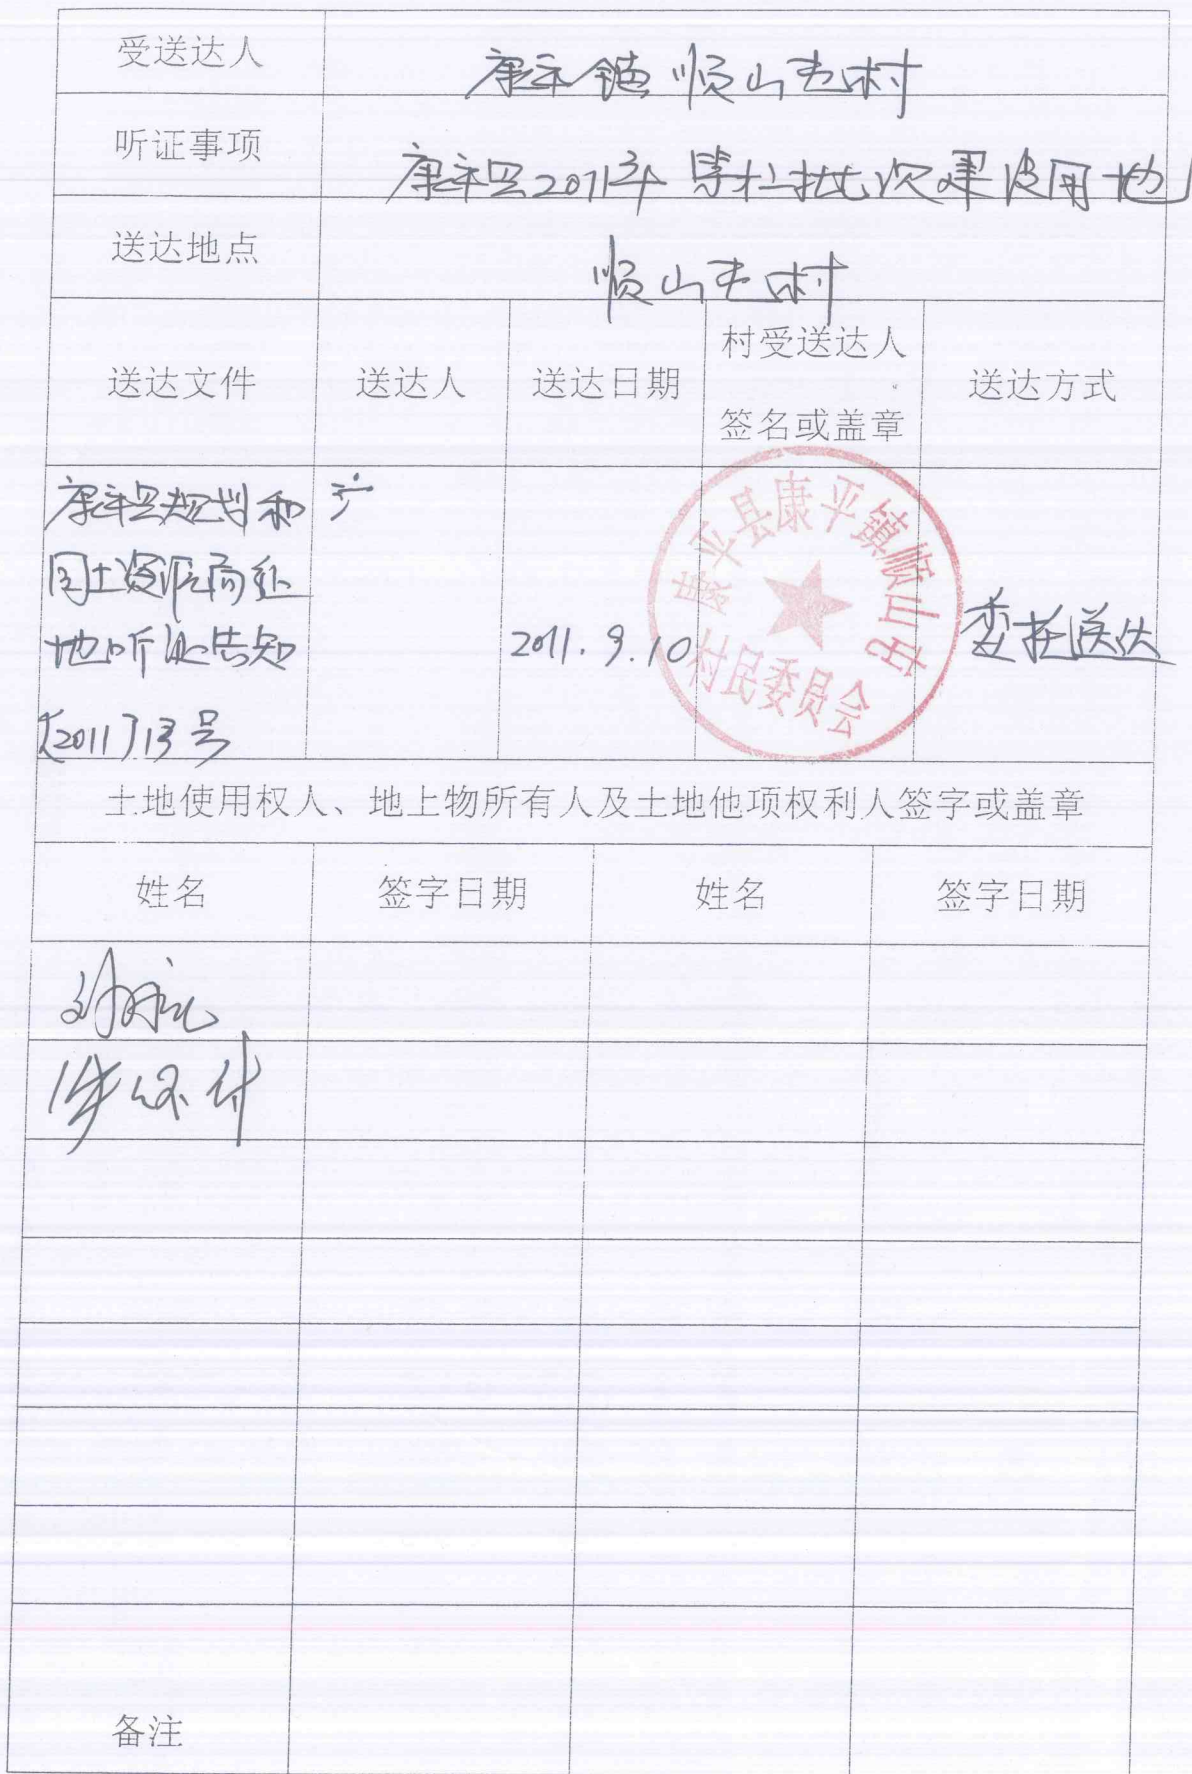 受送达人
康平镇顺山屯村
听证事项
康平县2011年第 批次建设用地
送达地点
顺山屯村
送达文件 送达人 送达日期 村受送达人 签名或盖章 送达方式
康平县规划和
国土资源局征
地听证告知
[2011]13号
2011.9.10
康平县康平镇顺山屯
村民委员会
委托送达
土地使用权人、地上物所有人及土地他项权利人签字或盖章
姓名 签字日期 姓名 签字日期
备注